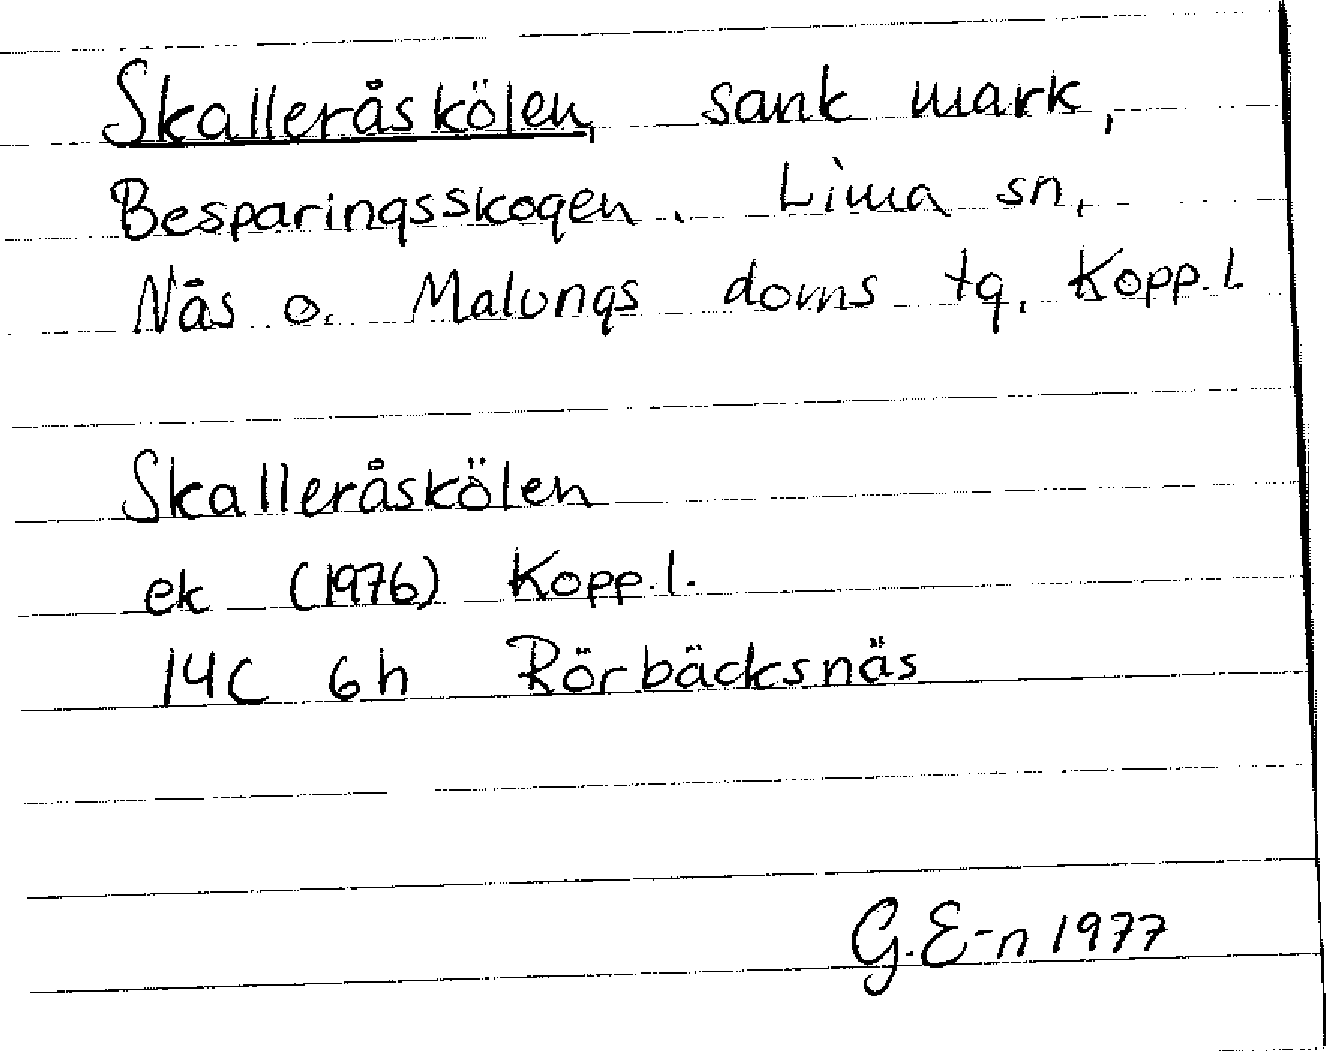 Skalleråskölen, sank mark,
Besparingsskogen. Lima sn,
Nås o. Malungs doms tg. Kopp.l.
Skalleråskölen
ek (1976) Kopp.l.
14C 6h Rörbäcksnäs
G.E-n 1977